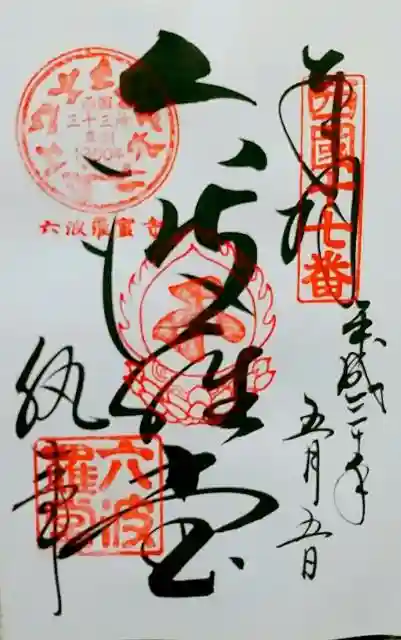 奉拝
西國十七番
平成三十年
五月五日
六波羅堂
西国三十三所
草創1300年
六波羅蜜寺
執事
六波
羅蜜